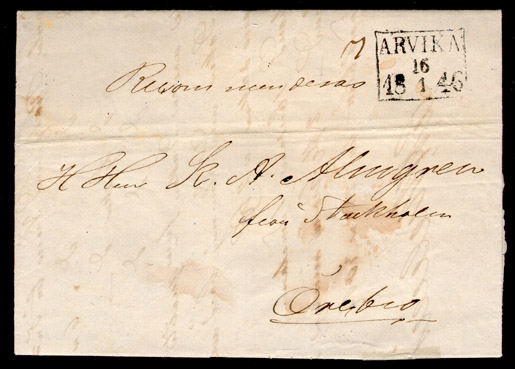 ARVIKA
16
18 1 46
Recommenderas
H Herr K. A. Almgren
från Stockholm
Örebro